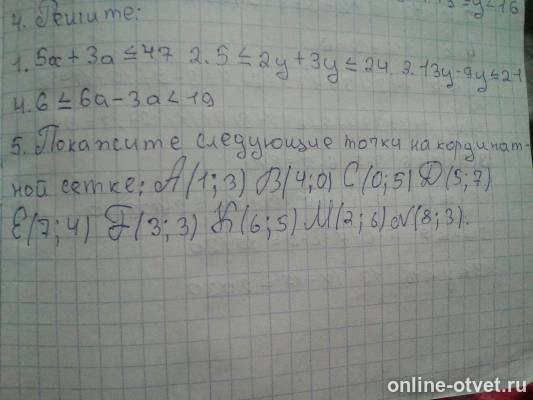 y<16
4. Решите:
1. 5а + 3а ≤ 47 2. 5 ≤ 2y + 3y ≤ 24. 3. 13y - 9y ≤ 21
4. 6 ≤ 6а - 3а < 19
5. Покажите следующие точки на кординат-
ной сетке: А(1; 3) В(4; 0) С(0; 5) Д(5; 7)
Е(7; 4) F(3; 3) К(6; 5) М(2; 6) N(8; 3).
online-otvet.ru